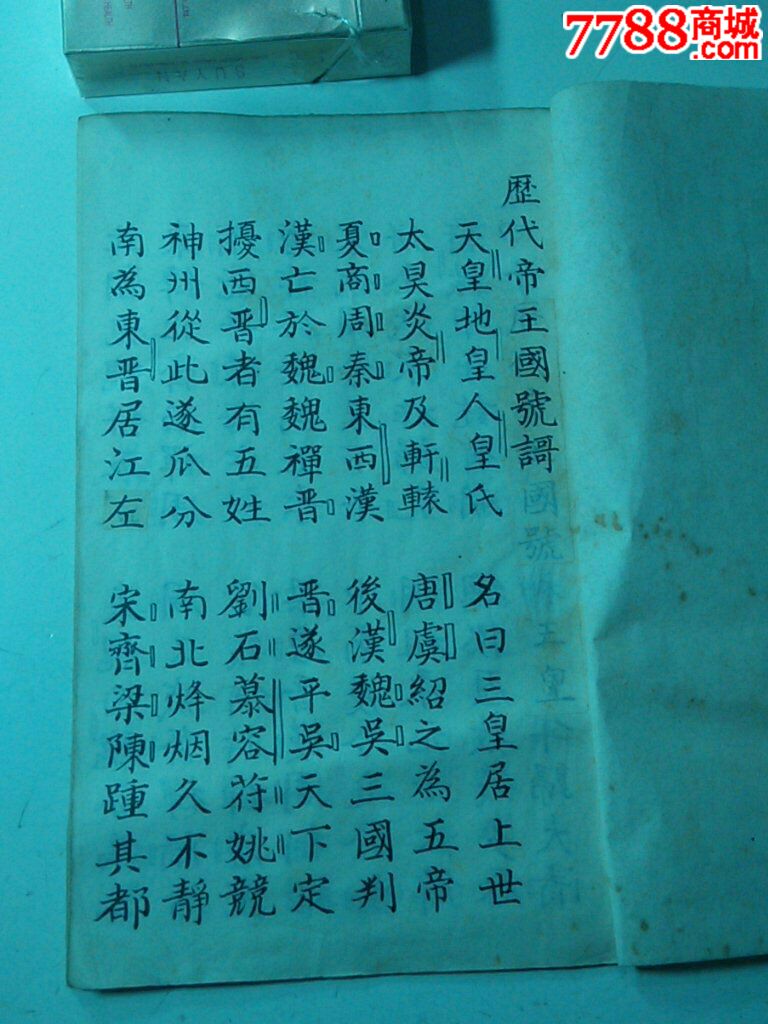 7788商城
.com
SUYAN
歷代帝王國號謌
天皇地皇人皇氏 名曰三皇居上世
太昊炎帝及軒轅 唐虞紹之為五帝
夏商周秦東西漢 後漢魏吳三國判
漢亡於魏魏禪晋 晋遂平吳天下定
擾西晋者有五姓 劉石慕容苻姚競
神州從此遂瓜分 南北烽烟久不靜
南為東晋居江左 宋齊梁陳踵其都